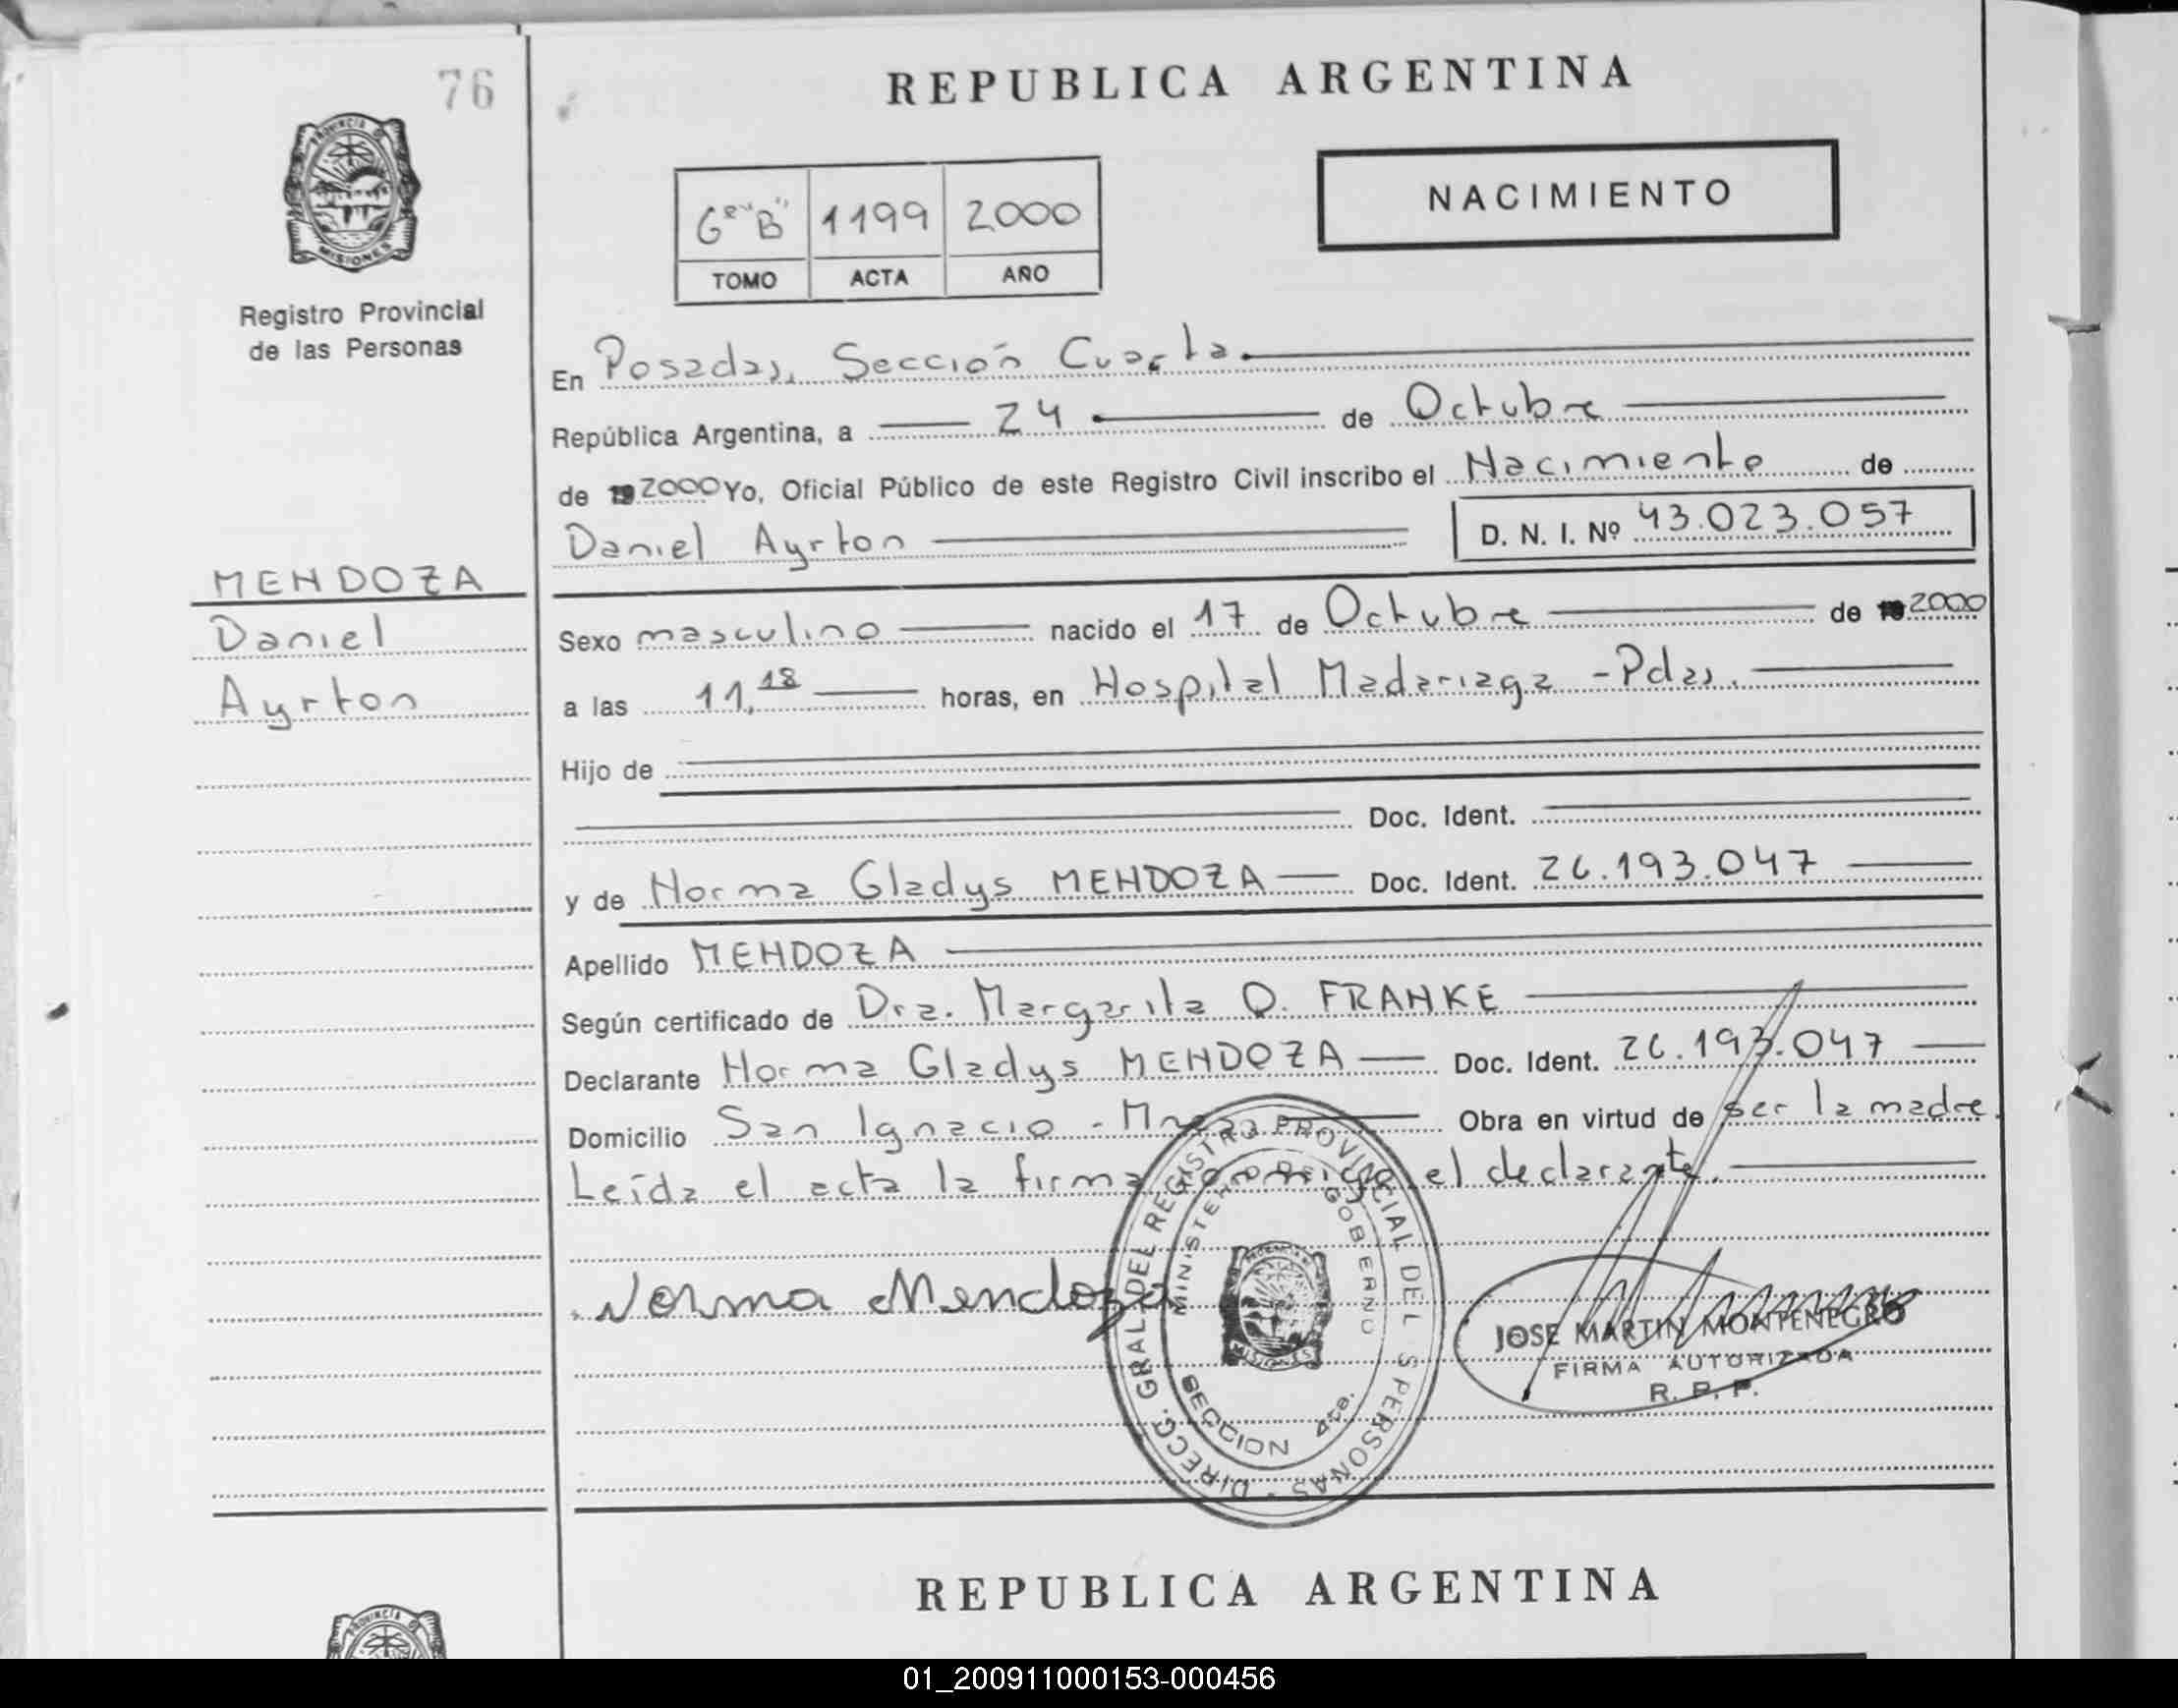 76
REPUBLICA ARGENTINA
PROVINCIA D
MISIONES
Registro Provincial
de las Personas
NACIMIENTO
6º "B" 1199 2000
TOMO ACTA AÑO
En Posadas, Sección Cuarta.
República Argentina, a 24 de Octubre
de 192000 Yo, Oficial Público de este Registro Civil inscribo el Nacimiento de
Daniel Ayrton D. N. I. Nº 43.023.057
MENDOZA
Daniel
Ayrton
Sexo masculino nacido el 17 de Octubre de 2000
a las 11,18 horas, en Hospital Madariaga - Pdas.
Hijo de
Doc. Ident.
y de Norma Gladys MENDOZA Doc. Ident. 26.193.047
Apellido MENDOZA
Según certificado de Dra. Margarita O. FRANKE
Declarante Norma Gladys MENDOZA Doc. Ident. 26.193.047
Domicilio San Ignacio - Mnes. Obra en virtud de ser la madre.
Leída el acta la firma conmigo el declarante.
Norma Mendoza
DIRECC. GRAL. DEL REGISTRO PROVINCIAL DE LS PERSONAS
MINISTERIO DE GOBIERNO
MISIONES
SECCION 4ta.
JOSE MARTIN MONTENEGRO
FIRMA AUTORIZADA
R. P. P.
REPUBLICA ARGENTINA
PROVINCIA
01_200911000153-000456